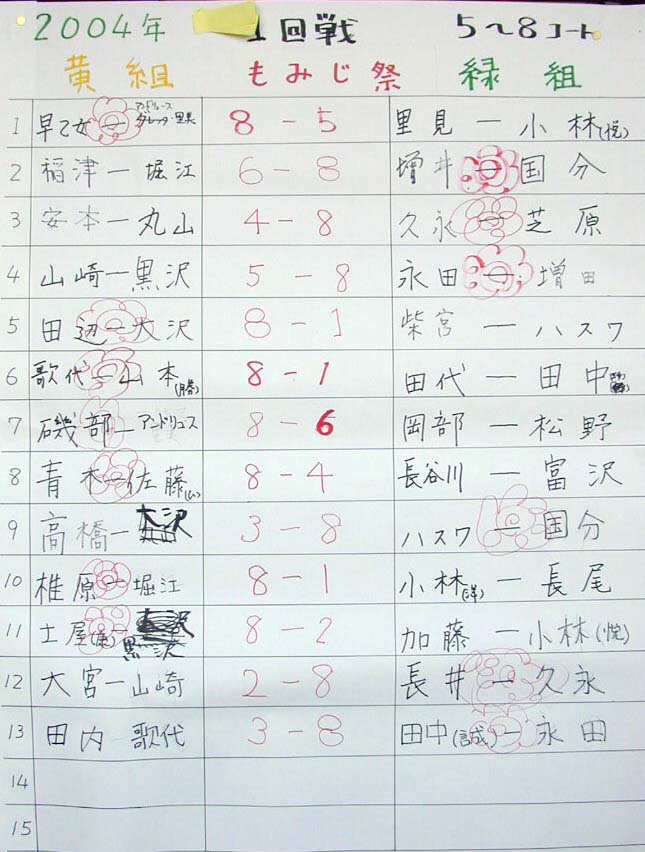 2004年 1回戦 5～8コート
黄組 もみじ祭 緑組
1 早乙女― 8-5 里見―小林(悦)
2 稲津―堀江 6-8 増井―国分
3 安本―丸山 4-8 久永―芝原
4 山崎―黒沢 5-8 永田―増田
5 田辺―大沢 8-1 柴宮―ハスワ
6 歌代―山本(勝) 8-1 田代―田中
7 磯部―アンドリュース 8-6 岡部―松野
8 青木―佐藤 8-4 長谷川―富沢
9 高橋―大沢 3-8 ハスワ―国分
10 椎原―堀江 8-1 小林(洋)―長尾
11 土屋 黒沢 8-2 加藤―小林(悦)
12 大宮―山崎 2-8 長井―久永
13 田内 歌代 3-8 田中(誠)―永田
14
15